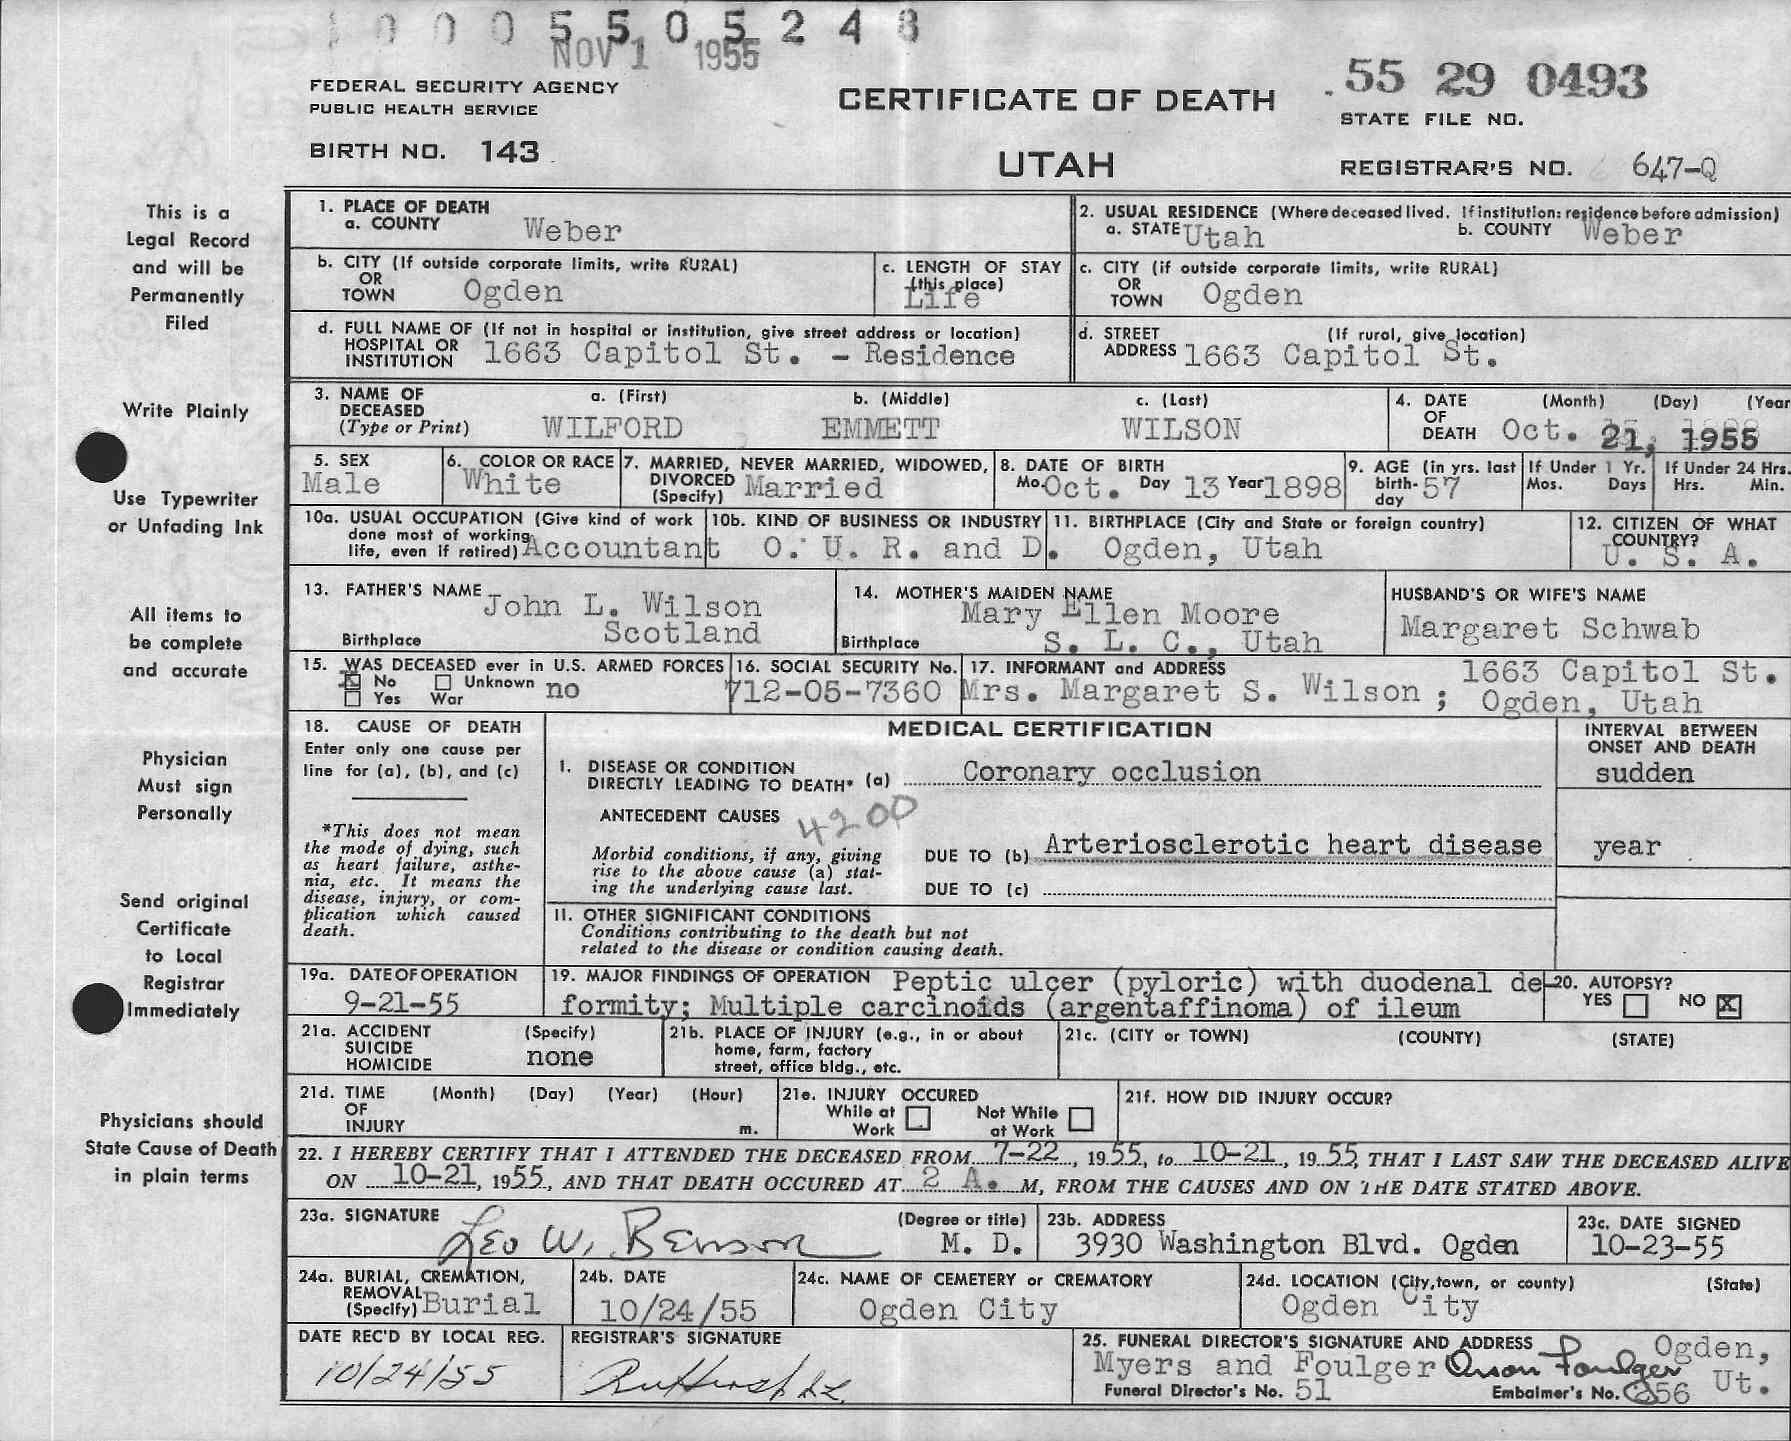 1 0 0 0 5 5 0 5 2 4 8
NOV 1 1955
FEDERAL SECURITY AGENCY
PUBLIC HEALTH SERVICE
BIRTH NO. 143
CERTIFICATE OF DEATH
UTAH
55 29 0493
STATE FILE NO.
REGISTRAR'S NO. 647-Q
This is a
Legal Record
and will be
Permanently
Filed
Write Plainly
Use Typewriter
or Unfading Ink
All items to
be complete
and accurate
Physician
Must sign
Personally
Send original
Certificate
to Local
Registrar
Immediately
Physicians should
State Cause of Death
in plain terms
1. PLACE OF DEATH
a. COUNTY Weber
2. USUAL RESIDENCE (Where deceased lived. If institution: residence before admission)
a. STATE Utah b. COUNTY Weber
b. CITY (If outside corporate limits, write RURAL)
OR
TOWN Ogden
c. LENGTH OF STAY
(this place)
Life
c. CITY (if outside corporate limits, write RURAL)
OR
TOWN Ogden
d. FULL NAME OF (If not in hospital or institution, give street address or location)
HOSPITAL OR
INSTITUTION 1663 Capitol St. - Residence
d. STREET (If rural, give location)
ADDRESS 1663 Capitol St.
3. NAME OF
DECEASED
(Type or Print)
a. (First) b. (Middle) c. (Last)
WILFORD EMMETT WILSON
4. DATE (Month) (Day) (Year
OF
DEATH Oct. 21, 1955
5. SEX
Male
6. COLOR OR RACE
White
7. MARRIED, NEVER MARRIED, WIDOWED,
DIVORCED
(Specify) Married
8. DATE OF BIRTH
Mo. Oct. Day 13 Year 1898
9. AGE (in yrs. last
birth-
day 57
If Under 1 Yr.
Mos. Days
If Under 24 Hrs.
Hrs. Min.
10a. USUAL OCCUPATION (Give kind of work
done most of working
life, even if retired) Accountant
10b. KIND OF BUSINESS OR INDUSTRY
O. U. R. and D.
11. BIRTHPLACE (City and State or foreign country)
Ogden, Utah
12. CITIZEN OF WHAT
COUNTRY?
U. S. A.
13. FATHER'S NAME John L. Wilson
Birthplace Scotland
14. MOTHER'S MAIDEN NAME
Mary Ellen Moore
Birthplace S. L. C., Utah
HUSBAND'S OR WIFE'S NAME
Margaret Schwab
15. WAS DECEASED ever in U.S. ARMED FORCES
No Unknown no
Yes War
16. SOCIAL SECURITY No.
712-05-7360
17. INFORMANT and ADDRESS 1663 Capitol St.
Mrs. Margaret S. Wilson ; Ogden, Utah
18. CAUSE OF DEATH
Enter only one cause per
line for (a), (b), and (c)
*This does not mean
the mode of dying, such
as heart failure, asthe-
nia, etc. It means the
disease, injury, or com-
plication which caused
death.
MEDICAL CERTIFICATION
INTERVAL BETWEEN
ONSET AND DEATH
I. DISEASE OR CONDITION
DIRECTLY LEADING TO DEATH* (a) Coronary occlusion sudden
ANTECEDENT CAUSES 4200
Morbid conditions, if any, giving
rise to the above cause (a) stat-
ing the underlying cause last.
DUE TO (b) Arteriosclerotic heart disease year
DUE TO (c)
II. OTHER SIGNIFICANT CONDITIONS
Conditions contributing to the death but not
related to the disease or condition causing death.
19a. DATE OF OPERATION
9-21-55
19. MAJOR FINDINGS OF OPERATION Peptic ulcer (pyloric) with duodenal de-
formity; Multiple carcinoids (argentaffinoma) of ileum
20. AUTOPSY?
YES NO X
21a. ACCIDENT (Specify)
SUICIDE
HOMICIDE none
21b. PLACE OF INJURY (e.g., in or about
home, farm, factory
street, office bldg., etc.
21c. (CITY or TOWN) (COUNTY) (STATE)
21d. TIME (Month) (Day) (Year) (Hour)
OF
INJURY m.
21e. INJURY OCCURED
While at Not While
Work at Work
21f. HOW DID INJURY OCCUR?
22. I HEREBY CERTIFY THAT I ATTENDED THE DECEASED FROM 7-22, 1955, to 10-21, 1955, THAT I LAST SAW THE DECEASED ALIVE
ON 10-21, 1955, AND THAT DEATH OCCURED AT 2 A. M, FROM THE CAUSES AND ON THE DATE STATED ABOVE.
23a. SIGNATURE (Degree or title)
Leo W. Benson M. D.
23b. ADDRESS
3930 Washington Blvd. Ogden
23c. DATE SIGNED
10-23-55
24a. BURIAL, CREMATION,
REMOVAL
(Specify) Burial
24b. DATE
10/24/55
24c. NAME OF CEMETERY or CREMATORY
Ogden City
24d. LOCATION (City, town, or county) (State)
Ogden City
DATE REC'D BY LOCAL REG.
10/24/55
REGISTRAR'S SIGNATURE
25. FUNERAL DIRECTOR'S SIGNATURE AND ADDRESS Ogden,
Myers and Foulger Orson Foulger Ut.
Funeral Director's No. 51 Embalmer's No. 856